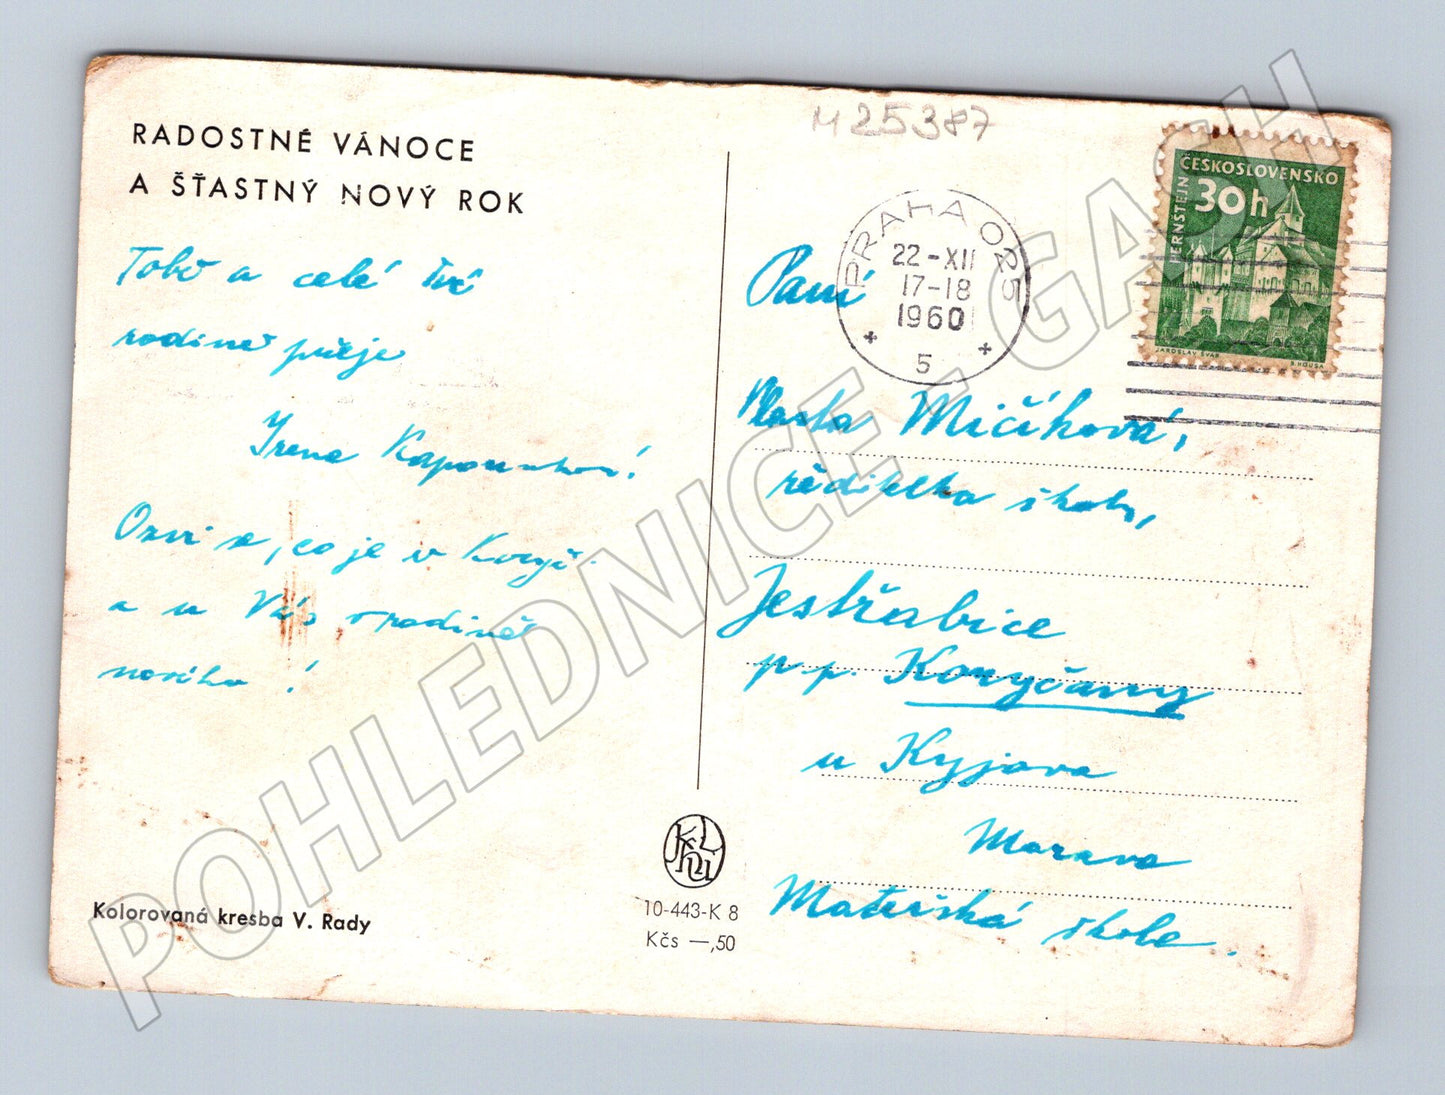 RADOSTNÉ VÁNOCE
A ŠŤASTNÝ NOVÝ ROK
Tobě a celé Tvé
rodině přeje
Irena
Ozvi se, co je v Koryč.
a u Vás v rodině
nového!
Kolorovaná kresba V. Rady
10-443-K 8
Kčs —,50
M 25387
PRAHA 025
22-XII
17-18
1960
5
ČESKOSLOVENSKO
30h
PERNŠTEJN
JAROSLAV ŠVÁB
B. HOUSA
Paní
Vlasta Mičíhová,
ředitelka školy,
Jestřabice
p.p. Koryčany
u Kyjova
Morava
Mateřská škola.
POHLEDNICE - GASH